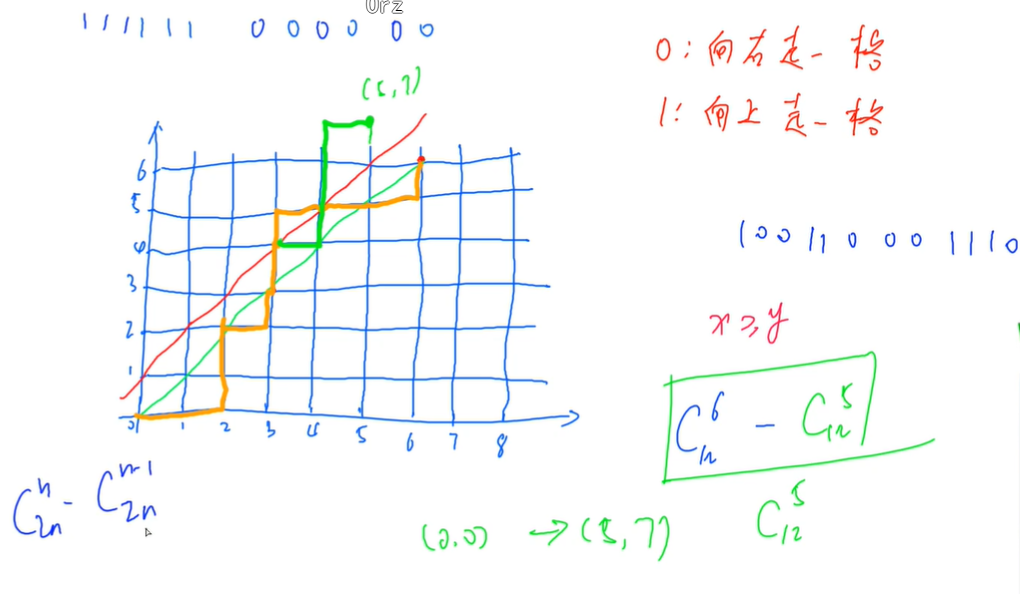 Orz
111111 000000
0:向右走一格
1:向上走一格
(5,7)
6
5
4
3
2
1
0 1 2 3 4 5 6 7 8
100110001110
x≥y
C₁₂⁶ - C₁₂⁵
C₂ₙⁿ - C₂ₙⁿ⁻¹
(0.0) → (5,7) C₁₂⁵